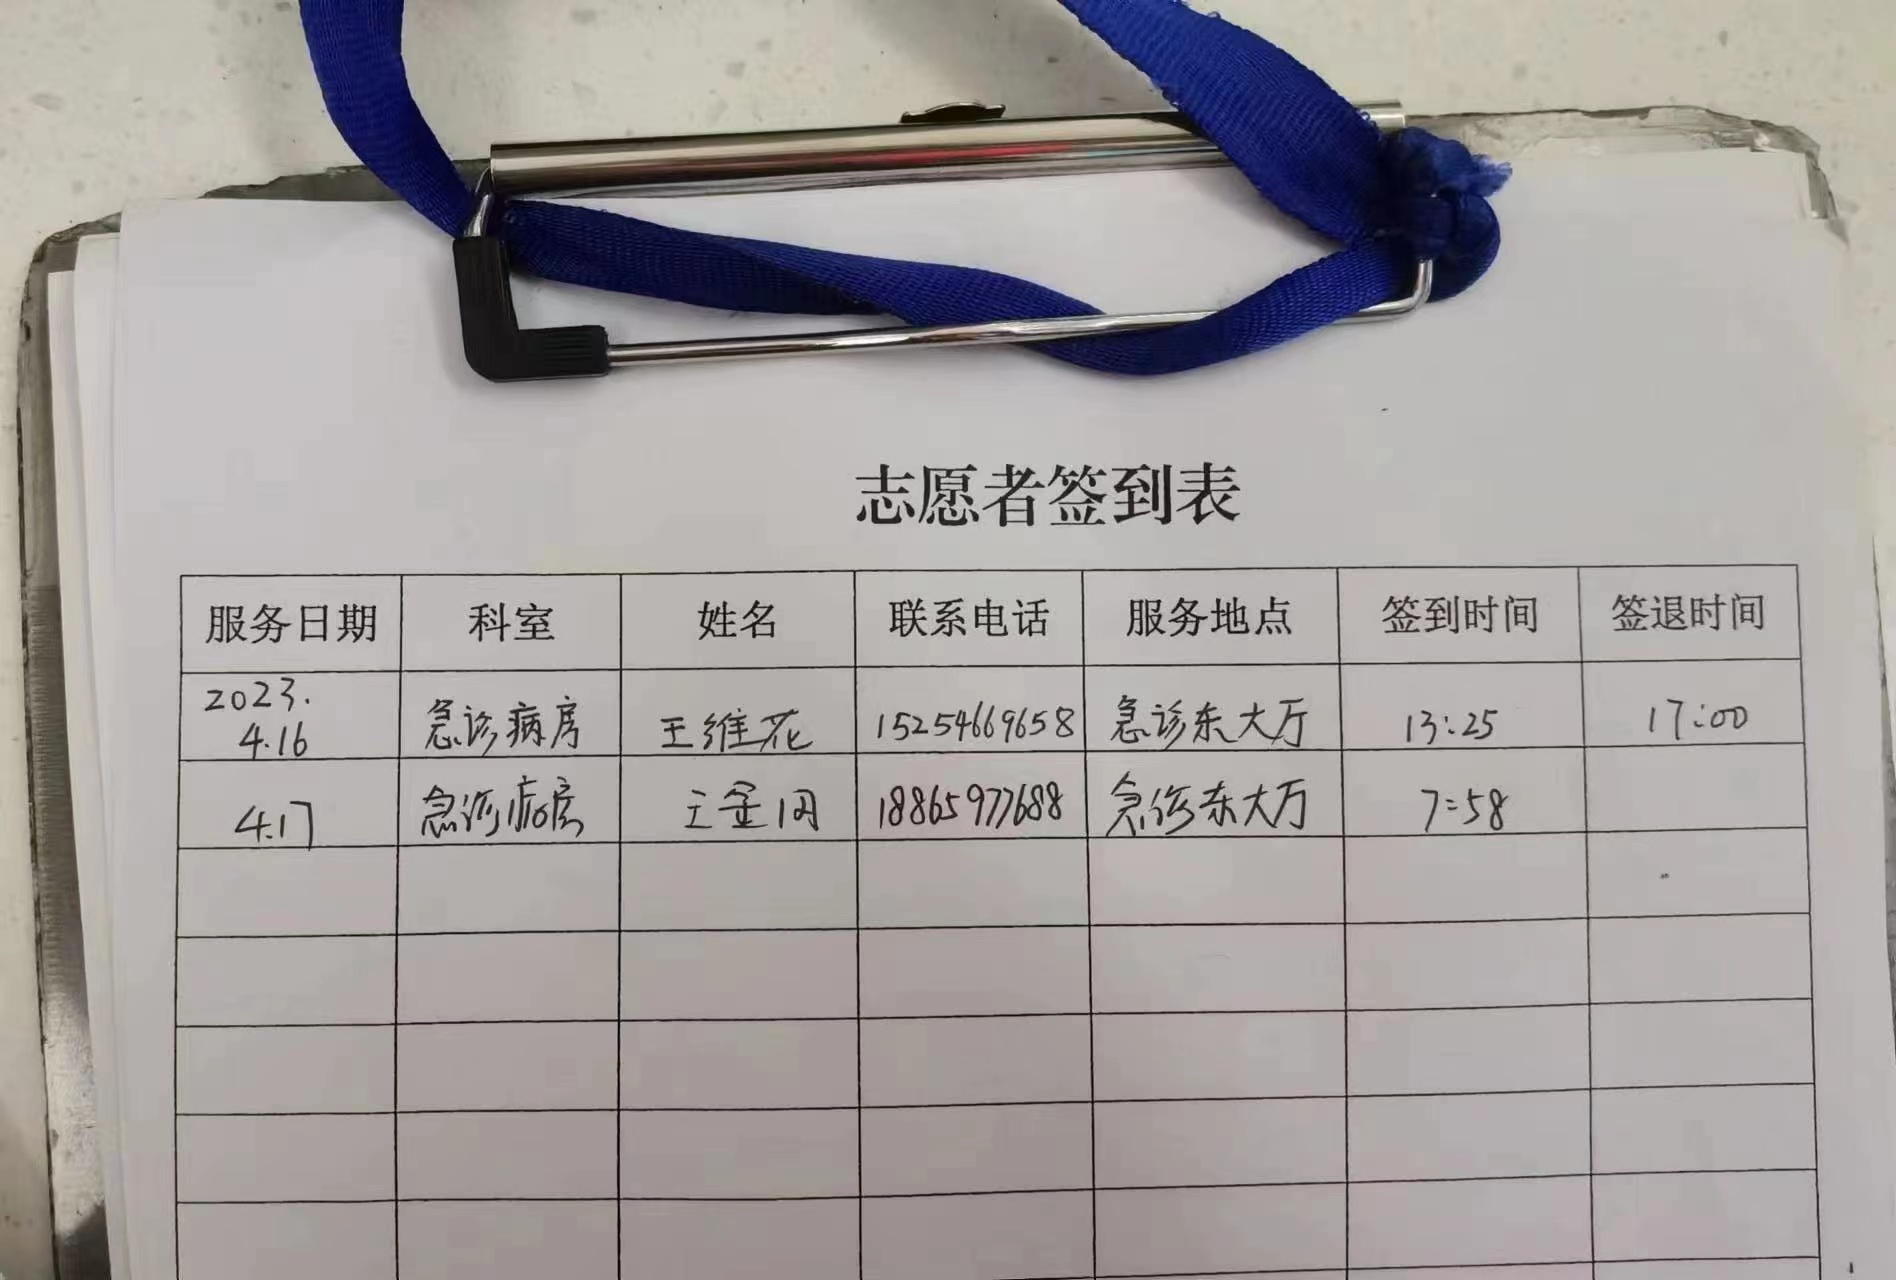 志愿者签到表
服务日期 科室 姓名 联系电话 服务地点 签到时间 签退时间
2023.
4.16 急诊病房 王维花 15254669658 急诊东大厅 13:25 17:00
4.17 急诊病房 王金 18865977688 急诊东大厅 7:58